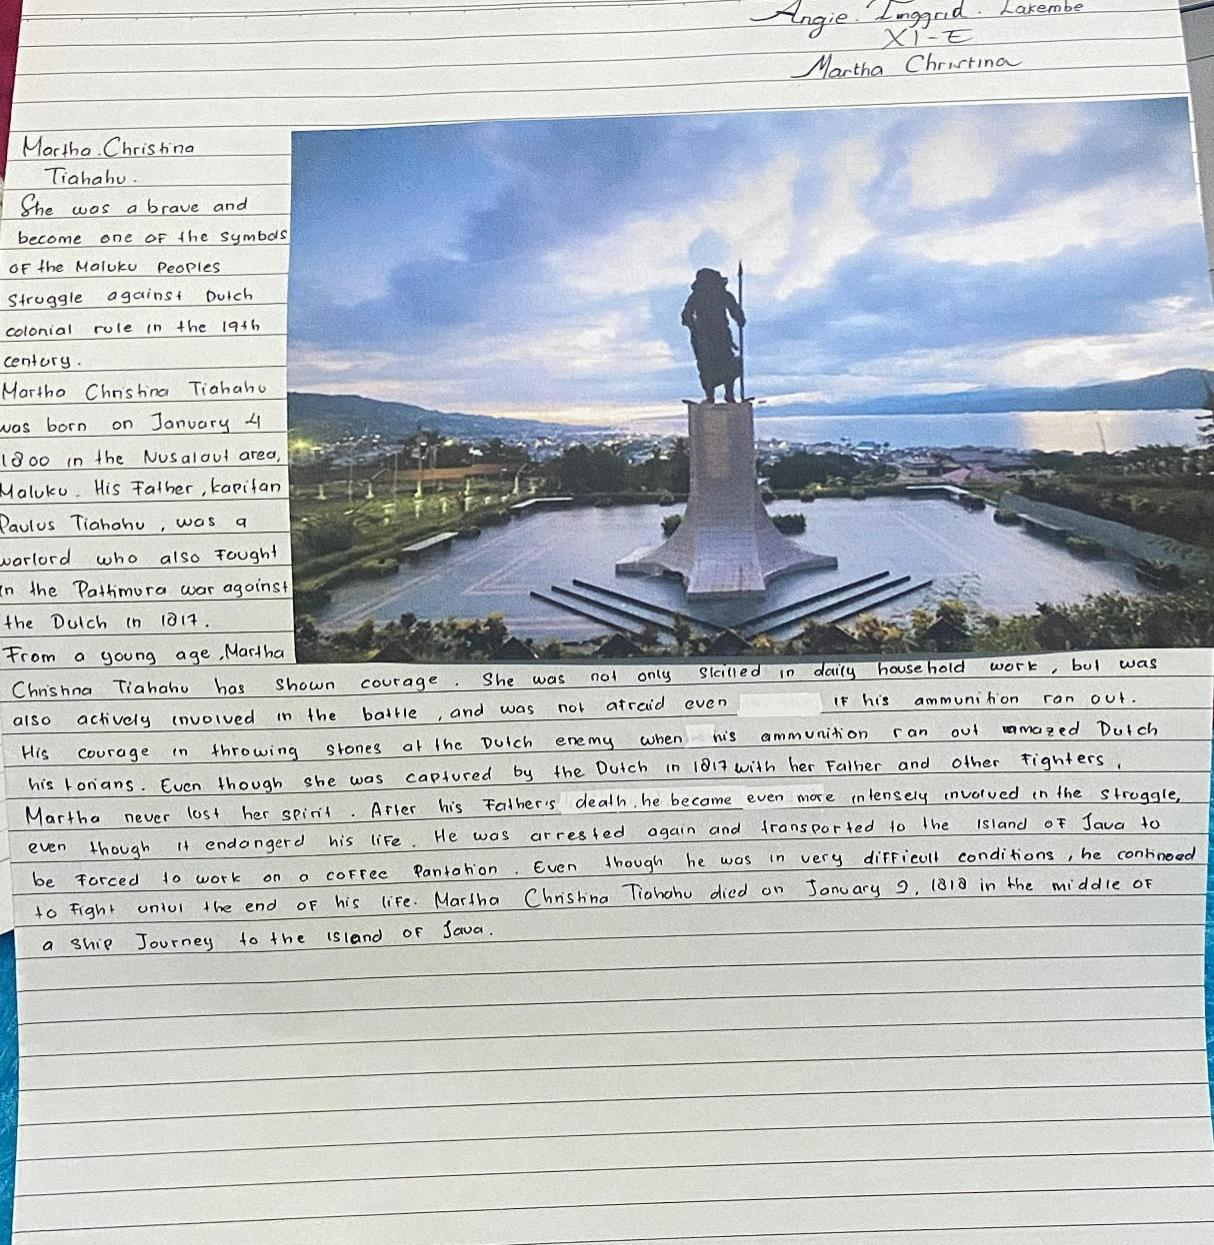 Angie. Inggrid. Lakembe
XI-E
Martha Christina
Martha.Christina
Tiahahu.
She was a brave and
become one OF the symbols
OF the Maluku Peoples
Struggle against Dutch
colonial rule in the 19th
century.
Martha Christina Tiahahu
was born on January 4
1800 in the Nusalaut area,
Maluku. His Father, kapitan
Paulus Tiahahu, was a
warlord who also Fought
in the Pattimura war against
the Dutch in 1817.
From a young age, Martha
Christina Tiahahu has shown courage. She was not only skilled in daily household work, but was
also actively involved in the battle, and was not afraid even IF his ammunition ran out.
His courage in throwing stones at the Dutch enemy when his ammunition ran out amazed Dutch
historians. Even though she was captured by the Dutch in 1817 with her Father and other Fighters,
Martha never lost her spirit. After his Father's death. he became even more intensely involved in the struggle,
even though it endangerd his life. He was arrested again and transported to the island OF Java to
be Forced to work on a coffee Pantation. Even though he was in very difficult conditions, he continoed
to Fight untul the end OF his life. Martha Christina Tiahahu died on January 2, 1818 in the middle OF
a ship Journey to the island OF Java.